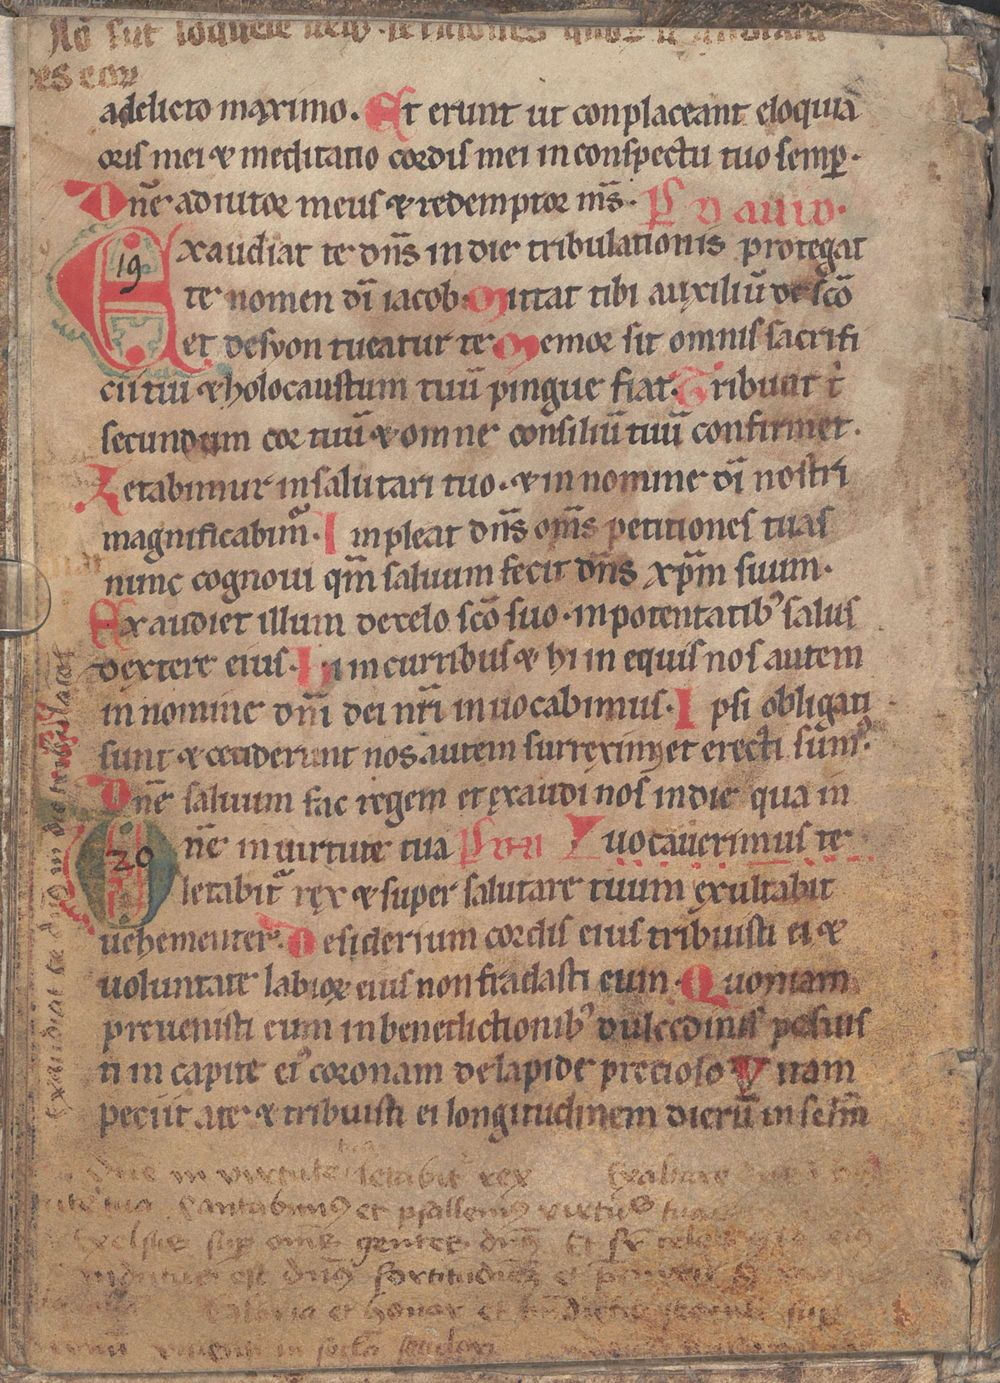 Nō sūt loquele neqȝ sermones quoꝝ
es eoꝝ
adelicto maximo. Et erunt ut conplaceant eloquia
oris mei & meditatio cordis mei in conspectu tuo semp̲.
Dn̄e adiutor meus & redemptor m̄s. Ps Dauid.
Exaudiat te dn̄s in die tribulationis protegat
19
te nomen dī iacob. Mittat tibi auxiliū de scō
et desyon tueatur te Memor sit omnis sacrifi
cii tui & holocaustum tuū pingue fiat. Tribuat t̄
secundum cor tuū & omne consiliū tuū confirmet.
Letabimur in salutari tuo. & in nomine dī nostri
magnificabim᷒. Inpleat dn̄s om̄s petitiones tuas
nunc cognoui qm̄ saluum fecit dn̄s xp̄m suum.
Exaudiet illum de celo scō suo. in potentatibꝰ salus
dextere eius. Hi in curribus & hi in equis nos autem
in nomine dn̄i dei nr̄i inuocabimus. Ipsi obligati
sunt & ceciderunt nos autem surreximꝰ et erecti sumꝰ.
Dn̄e saluum fac regem et exaudi nos in die qua in
Dn̄e in uirtute tua uocauerimus te
20
letabit᷒ rex & super salutare tuum exultabit
uehementer. Desiderium cordis eius tribuisti ei &
uoluntate labioꝝ eius non fraudasti eum. Quoniam
preuenisti eum in benedictionibꝰ dulcedinis posuis
ti in capite eiꝰ coronam de lapide precioso Vitam
peciit a te & tribuisti ei longitudinem dierū in sclm̄
Exaudiat te dn̄s in die tribulacōis
dn̄e in virtute tua letabit᷒ rex Exaltare
tute tua Cantabimꝰ et psallemꝰ virtutes tuas
Excelsus sup̲ omēs gentes dn̄s Et sr̄ celos
indutus est dn̄s fortitudinē et
Gloria et honor et